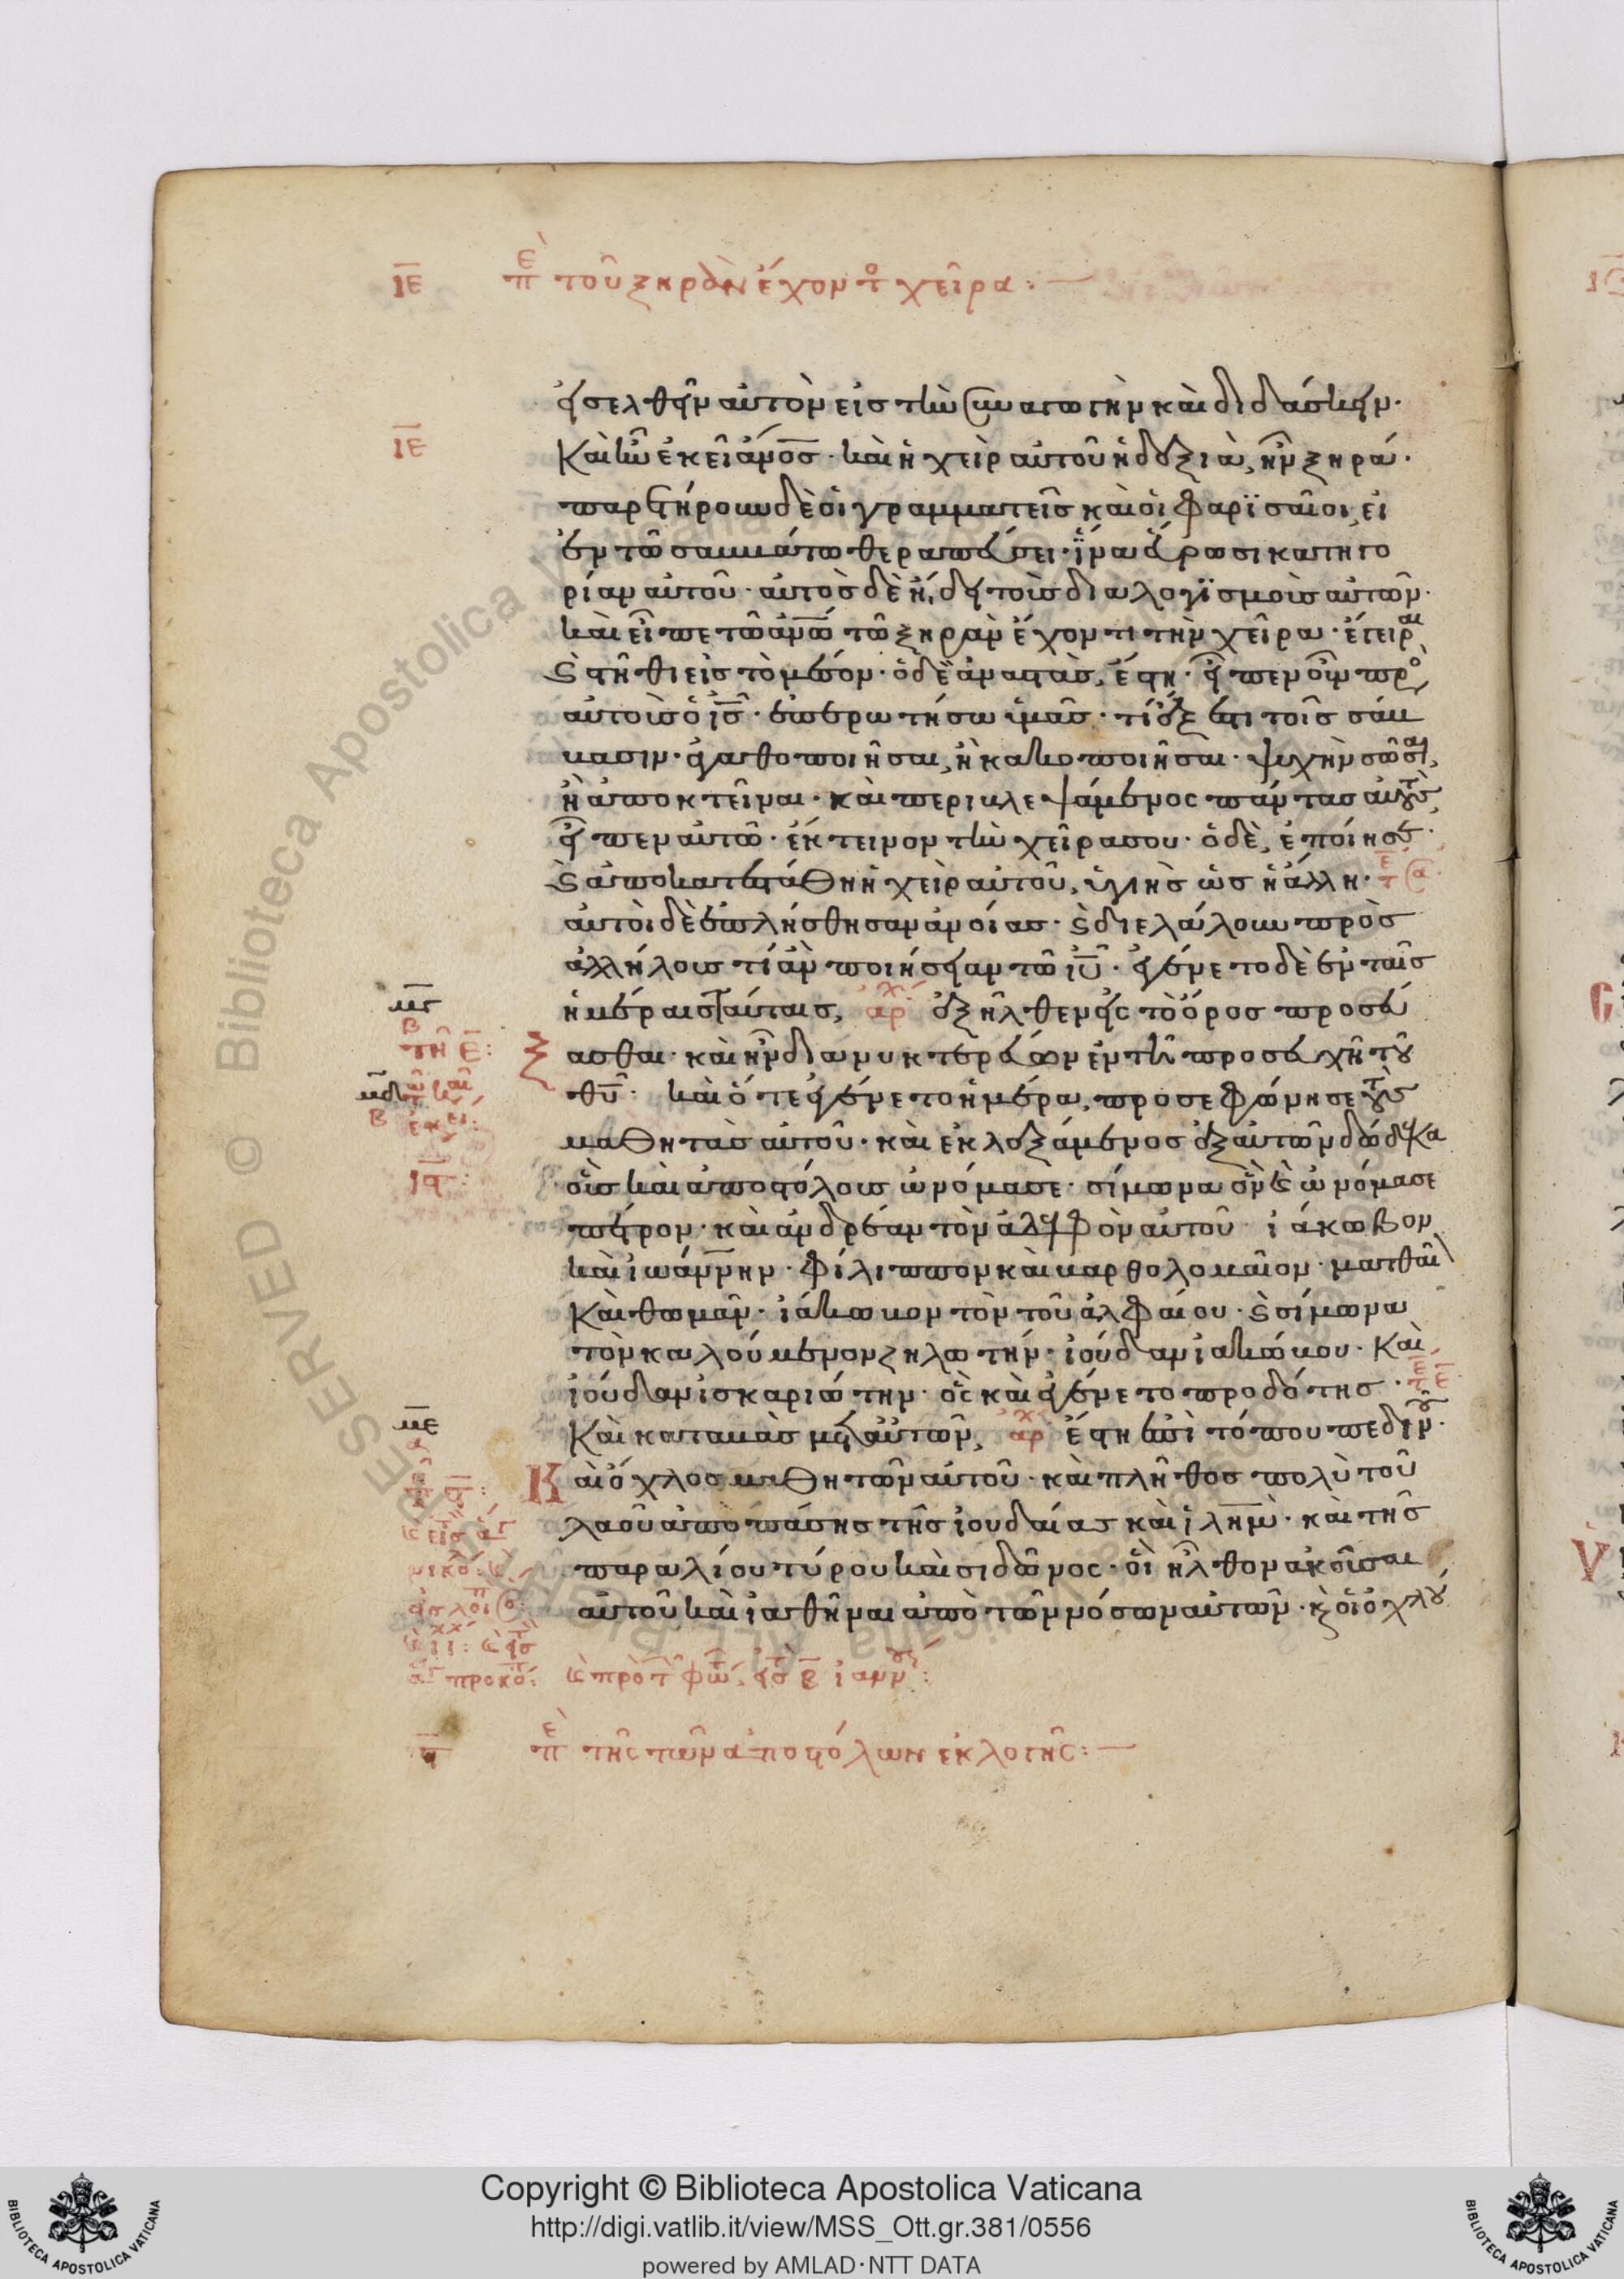 ΙΕ περὶ τοῦ ξηρὰν ἔχοντος χεῖρα:
εἰσελθεῖν αὐτὸν εἰς τὴν συναγωγὴν καὶ διδάσκειν·
ΙΕ Καὶ ἦν ἐκεῖ ἄνος· καὶ ἡ χεὶρ αὐτοῦ ἡ δεξιὰ, ἦν ξηρά·
παρετήρουν δὲ οἱ γραμματεῖς καὶ οἱ φαρϊσαῖοι, εἰ
ἐν τῶ σαββάτω θεραπεύσει· ἵνα εὕρωσι κατηγο
ρίαν αὐτοῦ· αὐτὸς δὲ ἤδει τοὺς διαλογϊσμοὺς αὐτῶν·
καὶ εἶπε τῶ ἀνω τῶ ξηρὰν ἔχοντι τὴν χεῖρα· ἔγειραι
καὶ στῆθι εἰς τὸ μέσον· ὁ δὲ ἀναστὰς, ἔστη· εἶπεν οὖν πρὸς
αὐτοὺς ὁ ις· ἐπερωτήσω ὑμᾶς· τί ἔξεστι τοῖς σάβ
βασιν· ἀγαθοποιῆσαι, ἢ κακοποιῆσαι· ψυχὴν σῶσαι,
ἢ ἀποκτεῖναι· καὶ περιβλεψάμενος πάντας αὐτοὺς,
εἶπεν αὐτῶ· ἔκτεινον τὴν χεῖρα σου· ὁ δὲ, ἐποίησε·
καὶ ἀποκατεστάθη ἡ χεὶρ αὐτοῦ, ὑγιὴς ὡς ἡ ἄλλη·
αὐτοὶ δὲ ἐπλήσθησαν ἀνοίας· καὶ διελάλουν πρὸς
ἀλλήλους τί ἂν ποιήσειαν τῶ ιυ· ἐγένετο δὲ ἐν ταῖς
ἡμέραις ταύταις, ἀρχ ἐξῆλθεν εἰς τὸ ὄρος προσεύ
ξασθαι· καὶ ἦν διανυκτερεύων ἐν τῆ προσευχῆ τοῦ
θυ· καὶ ὅτε ἐγένετο ἡμέρα, προσεφώνησε τοὺς
μαθητὰς αὐτοῦ· καὶ ἐκλεξάμενος ἐξ αὐτῶν δώδεκα
οὓς καὶ ἀποστόλους ὠνόμασε· σίμωνα ὃν καὶ ὠνόμασε
πέτρον· καὶ ἀνδρέαν τὸν ἀδελφὸν αὐτοῦ ἰάκωβον
καὶ ἰωάννην· φίλιππον καὶ βαρθολομαῖον· ματθαῖ
Καὶ θωμᾶν· ἰάκωβον τὸν τοῦ ἀλφαίου· καὶ σίμωνα
τὸν καλούμενον ζηλωτήν· ἰούδαν ἰακώβου· Καὶ
ἰούδαν ἰσκαριώτην· ὃς καὶ ἐγένετο προδότης·
Καὶ καταβὰς μετ αὐτῶν, ἀρχ ἔστη ἐπὶ τόπου πεδινοῦ·
Καὶ ὄχλος μαθητῶν αὐτοῦ· καὶ πλῆθος πολὺ τοῦ
λαοῦ ἀπὸ πάσης τῆς ἰουδαίας καὶ ἱλημ· καὶ τῆς
παραλίου τύρου καὶ σιδῶνος· οἳ ἦλθον ἀκοῦσαι
αὐτοῦ καὶ ἰαθῆναι ἀπὸ τῶν νόσων αὐτῶν· καὶ οἱ ὀχλού
περὶ τῆς τῶν ἀποστόλων ἐκλογῆς:
Copyright © Biblioteca Apostolica Vaticana
http://digi.vatlib.it/view/MSS_Ott.gr.381/0556
powered by AMLAD·NTT DATA